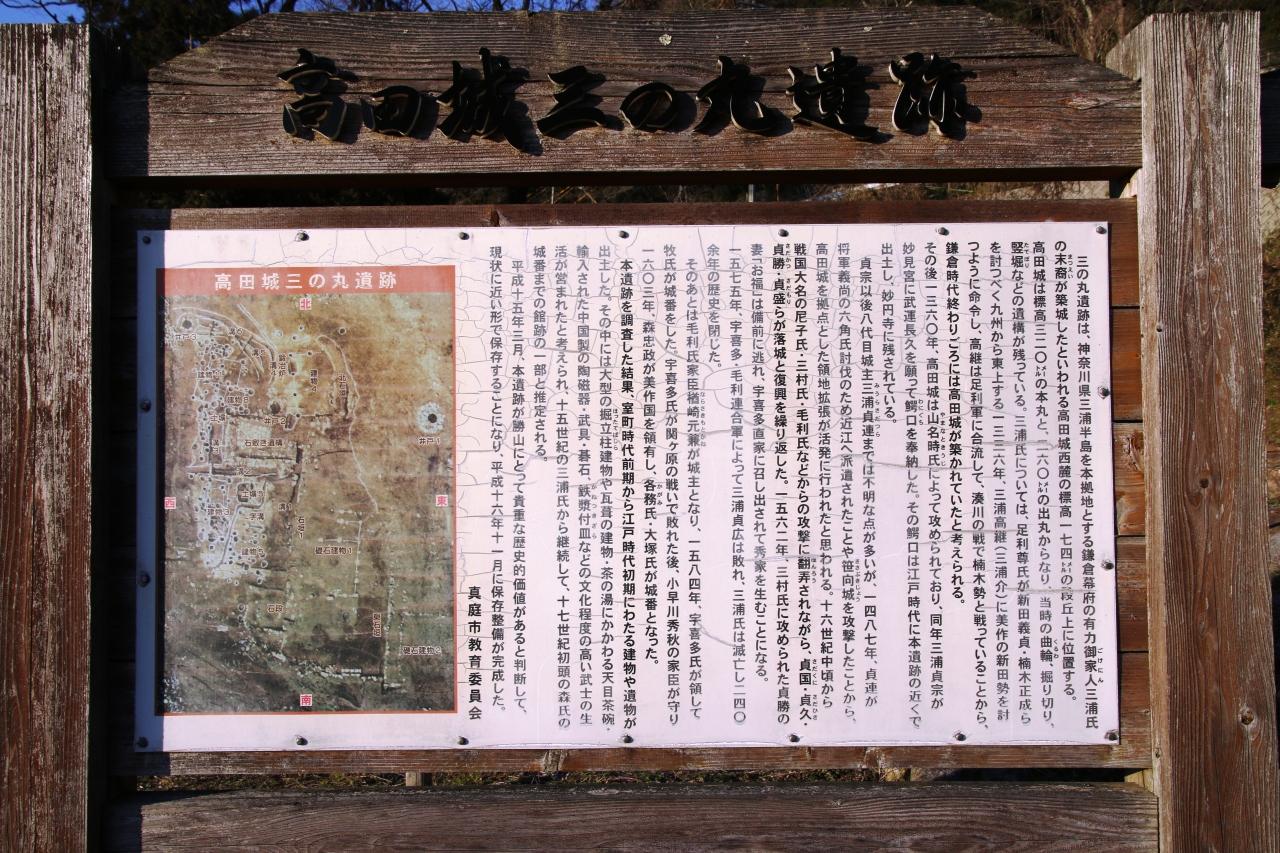 高田城三の丸遺跡
三の丸遺跡は、神奈川県三浦半島を本拠地とする鎌倉幕府の有力御家人三浦氏
の末裔が築城したといわれる高田城西麓の標高一七四㍍の段丘上に位置する。
高田城は標高三二〇㍍の本丸と、二六〇㍍の出丸からなり、当時の曲輪、掘り切り、
竪堀などの遺構が残っている。三浦氏については、足利尊氏が新田義貞・楠木正成ら
を討つべく九州から東上する一三三六年、三浦高継(三浦介)に美作の新田勢を討
つように命令し、高継は足利軍に合流して、湊川の戦で楠木勢と戦っていることから、
鎌倉時代終わりごろには高田城が築かれていたと考えられる。
その後一三六〇年、高田城は山名時氏によって攻められており、同年三浦貞宗が
妙見宮に武運長久を願って鰐口を奉納した。その鰐口は江戸時代に本遺跡の近くで
出土し、妙円寺に残されている。
貞宗以後八代目城主三浦貞連までは不明な点が多いが、一四八七年、貞連が
将軍義尚の六角氏討伐のため近江へ派遣されたことや笹向城を攻撃したことから、
高田城を拠点とした領地拡張が活発に行われたと思われる。十六世紀中頃から
戦国大名の尼子氏・三村氏・毛利氏などからの攻撃に翻弄されながら、貞国・貞久・
貞勝・貞盛らが落城と復興を繰り返した。一五六二年、三村氏に攻められた貞勝の
妻「お福」は備前に逃れ、宇喜多直家に召し出されて秀家を生むことになる。
一五七五年、宇喜多・毛利連合軍によって三浦貞広は敗れ、三浦氏は滅亡し二四〇
余年の歴史を閉じた。
そのあとは毛利氏家臣楢崎元兼が城主となり、一五八四年、宇喜多氏が領して
牧氏が城番をした。宇喜多氏が関ケ原の戦いで敗れた後、小早川秀秋の家臣が守り
一六〇三年、森忠政が美作国を領有し、各務氏・大塚氏が城番となった。
本遺跡を調査した結果、室町時代前期から江戸時代初期にわたる建物や遺物が
出土した。その中には大型の掘立柱建物や瓦葺の建物・茶の湯にかかわる天目茶碗・
輸入された中国製の陶磁器・武具・碁石・鉄漿付皿などの文化程度の高い武士の生
活が営まれたと考えられ、十五世紀の三浦氏から継続して、十七世紀初頭の森氏の
城番までの館跡の一部と推定される。
平成十五年三月、本遺跡が勝山にとって貴重な歴史的価値があると判断して、
現状に近い形で保存することになり、平成十六年十一月に保存整備が完成した。
真庭市教育委員会
高田城三の丸遺跡
北
西
東
南
井戸3
溝6
鍛冶炉
溝4
建物4
北石垣
建物8
土壙1
井戸2
井戸1
石敷き遺構
溝3
溝2
土壙3
建物3
溝1
石垣1
建物5
礎石建物1
石段
南石垣
礎石建物2